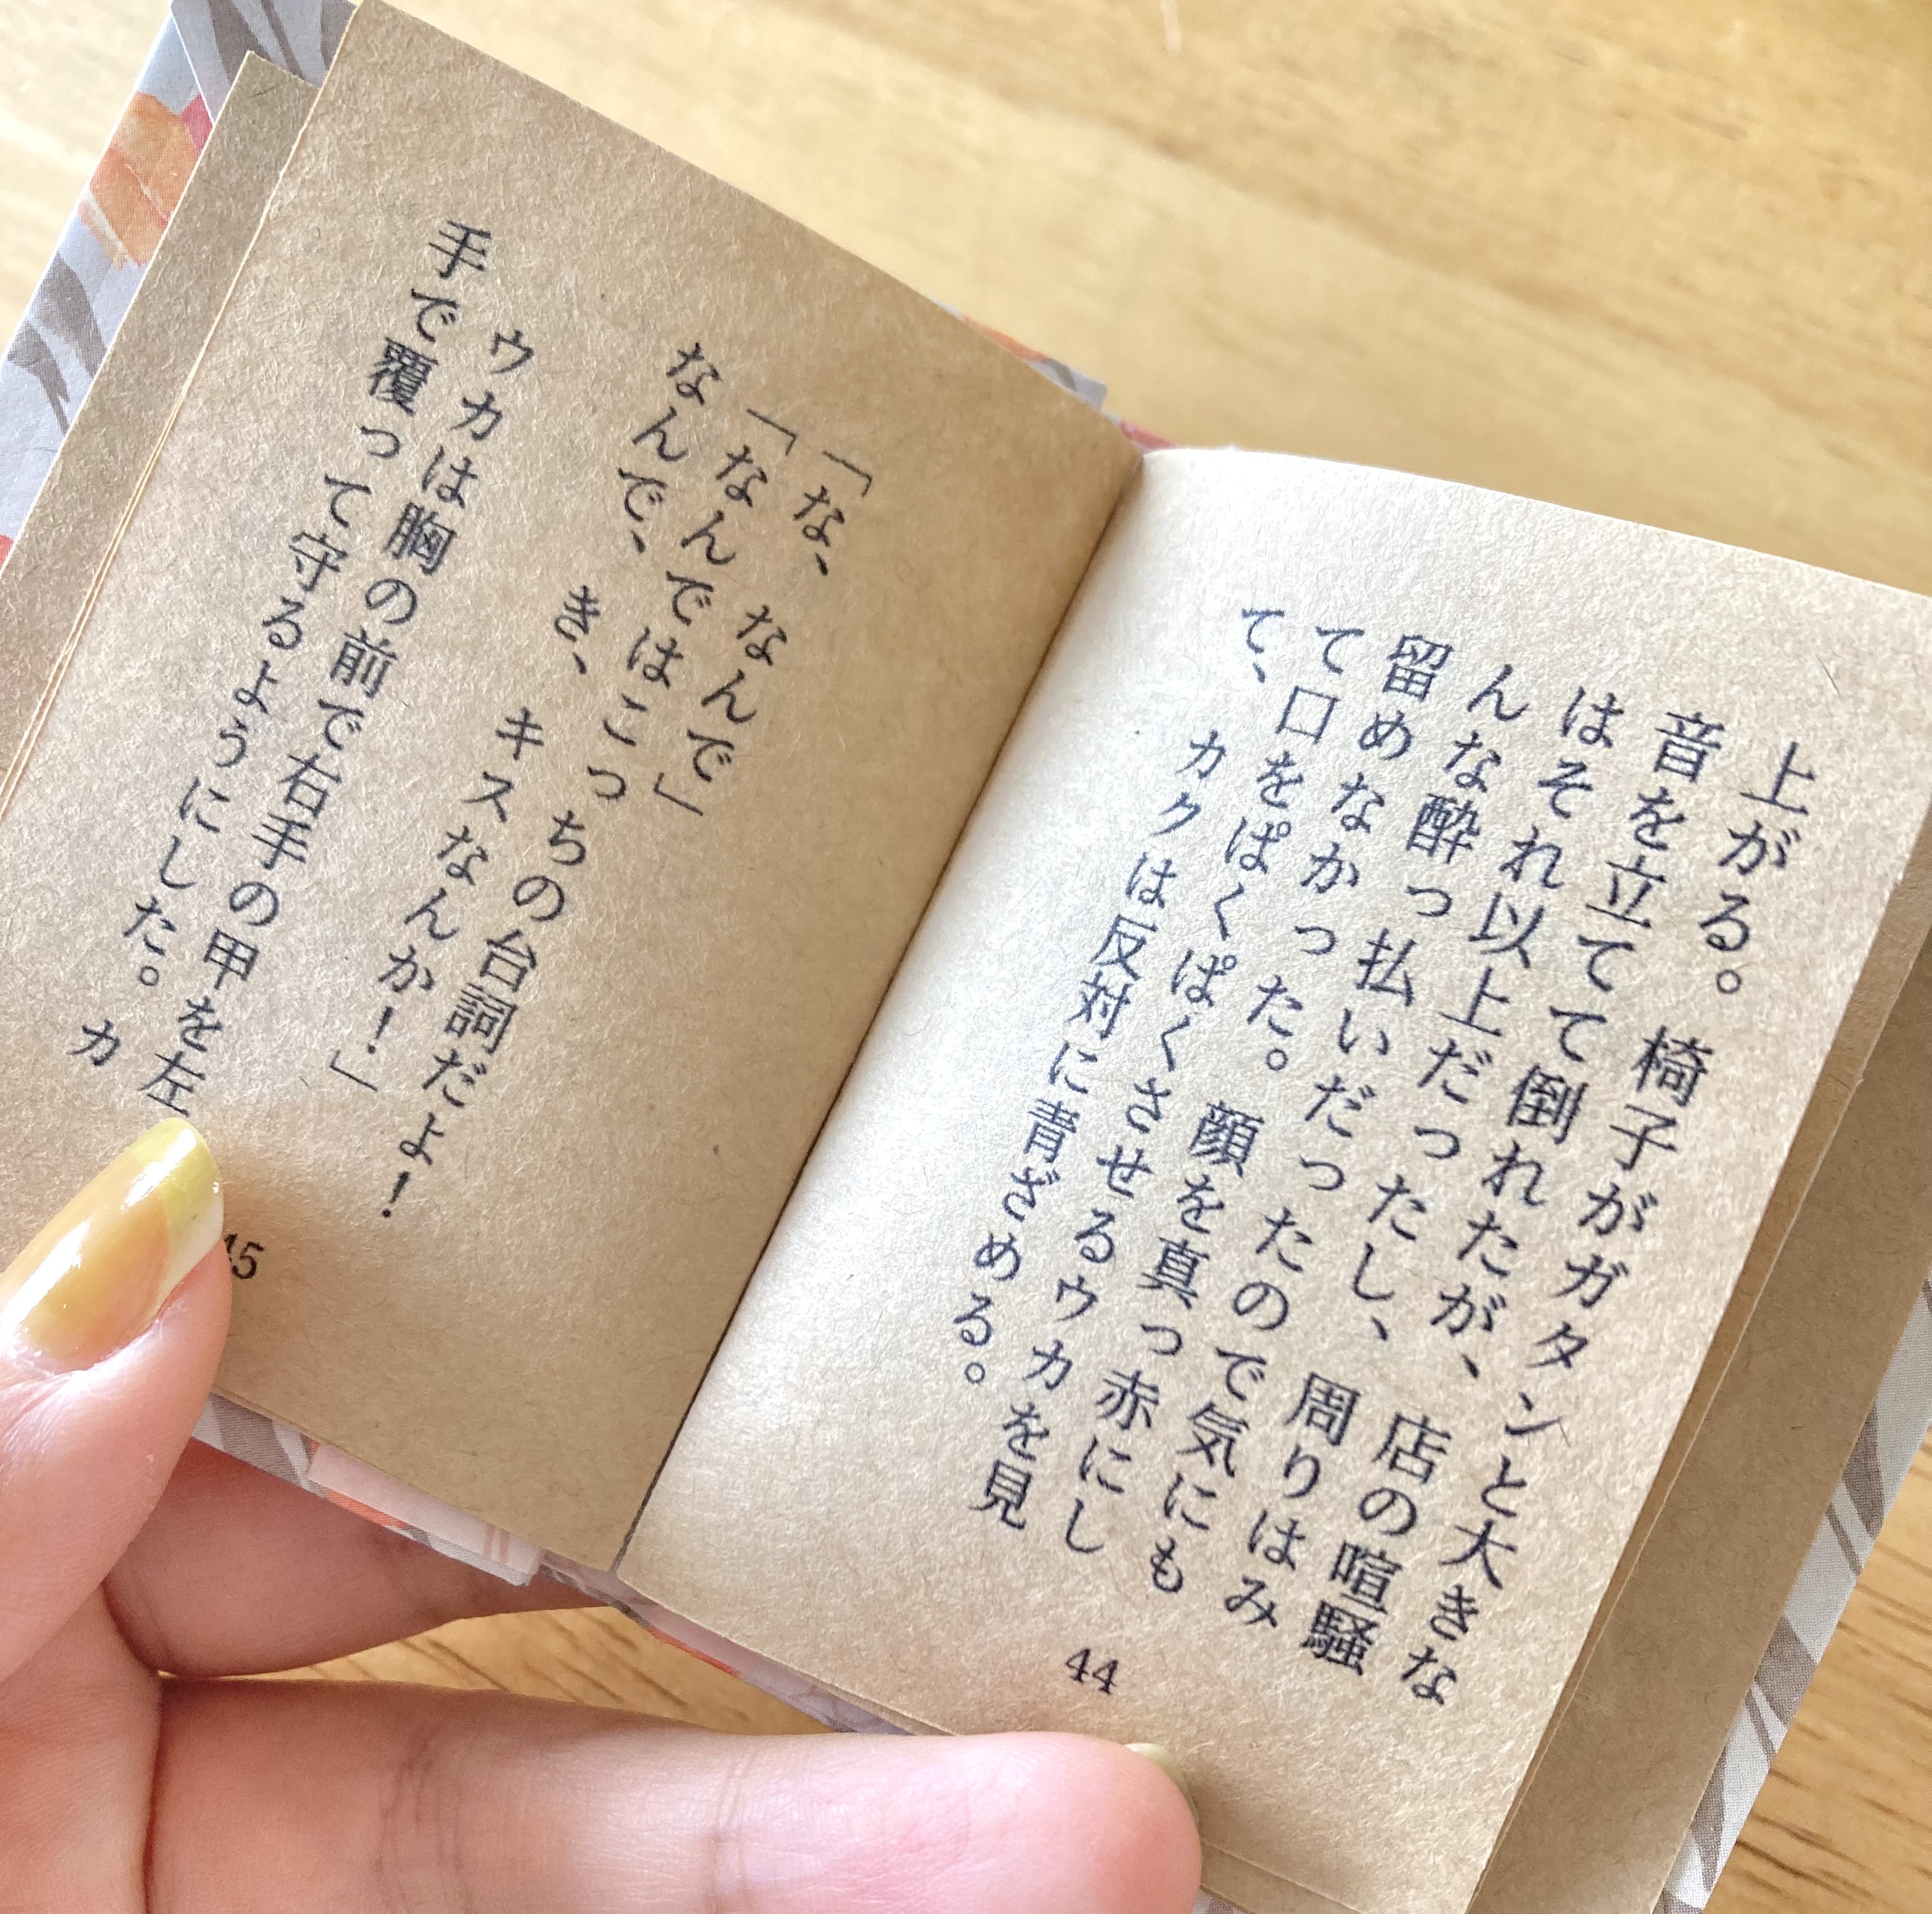 上がる。椅子がガタンと大きな
音を立てて倒れたが、店の喧騒
はそれ以上だったし、周りはみ
んな酔っ払いだったので気にも
留めなかった。顔を真っ赤にし
て口をぱくぱくさせるウカを見
て、カクは反対に青ざめる。
44
「な、なんで」
「なんではこっちの台詞だよ！
なんで、き、キスなんか！」
ウカは胸の前で右手の甲を左
手で覆って守るようにした。カ
45